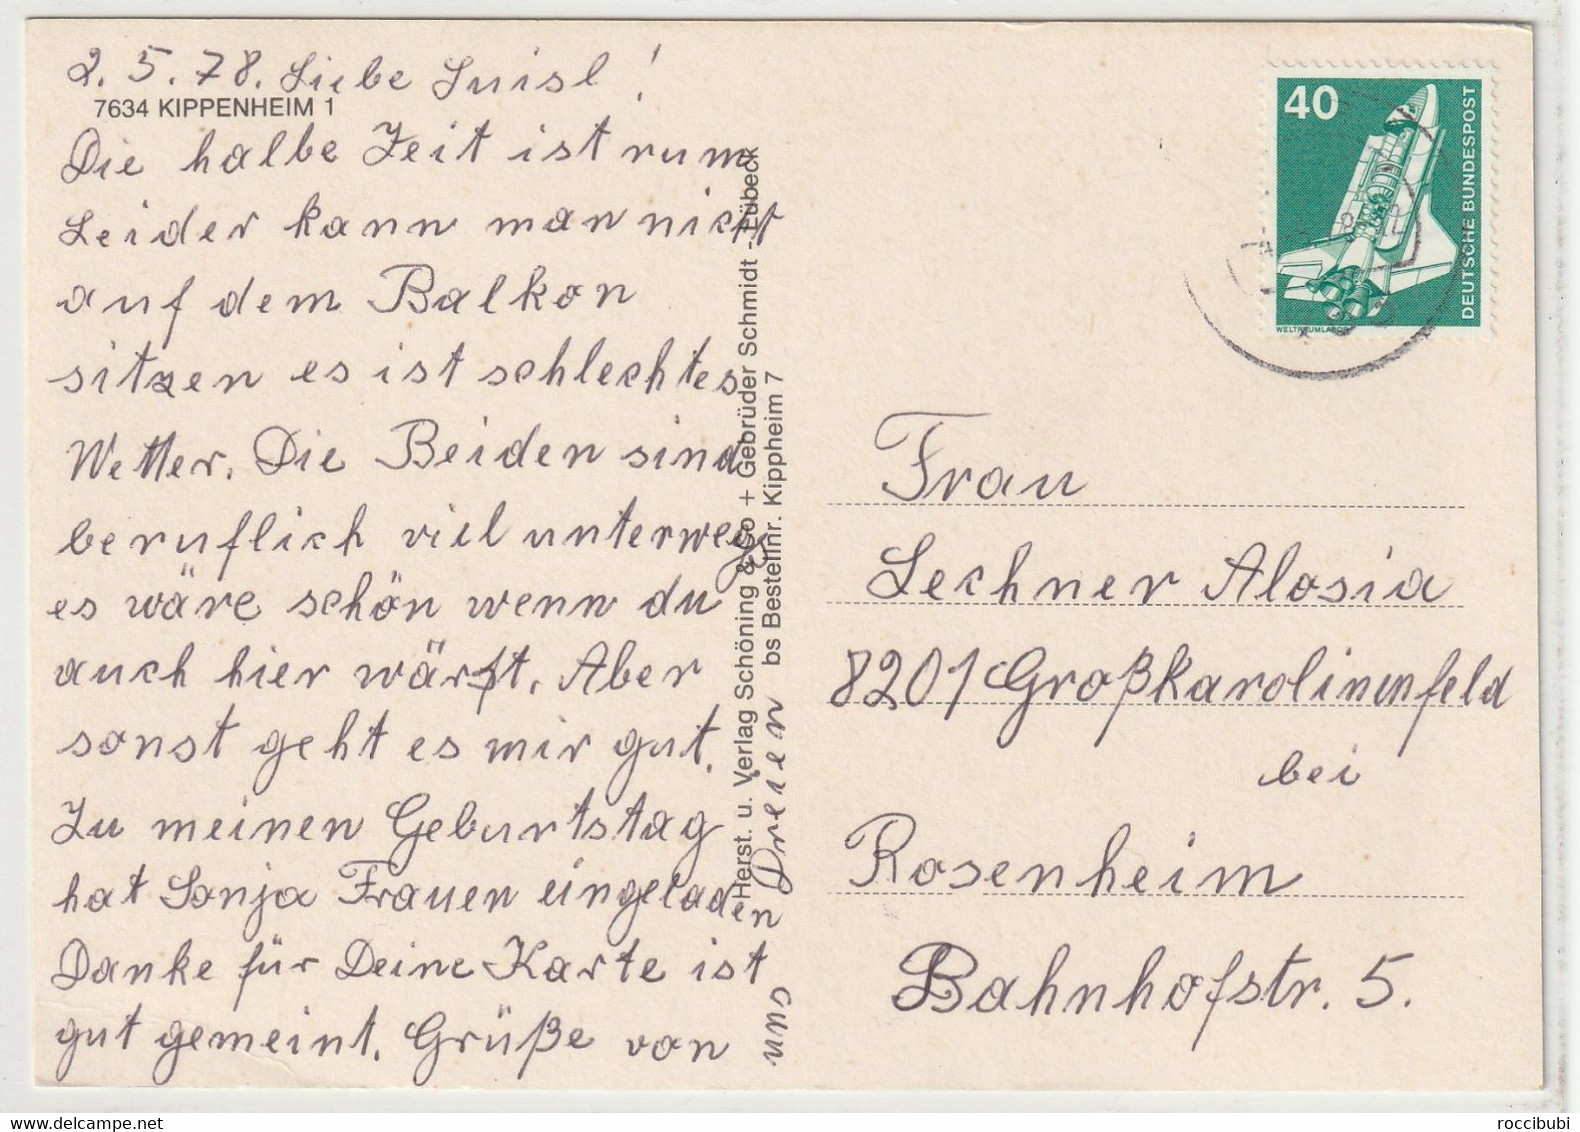 2.5.78. Liebe Luisl!
7634 KIPPENHEIM 1
Die halbe Zeit ist rum
Leider kann man nicht
auf dem Balkon
sitzen es ist schlechtes
Wetter. Die Beiden sind
beruflich viel unterwegs
es wäre schön wenn du
auch hier wärst. Aber
sonst geht es mir gut.
Zu meinen Geburtstag
hat Sonja Frauen eingeladen
Danke für Deine Karte ist
gut gemeint. Grüße von
uns Dreien
Herst. u. Verlag Schöning & Co + Gebrüder Schmidt - Lübeck
bs Bestellnr. Kippheim 7
40
DEUTSCHE BUNDESPOST
WELTRAUMLABOR
Frau
Lechner Alosia
8201 Großkarolinenfeld
bei
Rosenheim
Bahnhofstr. 5.
roccibubi